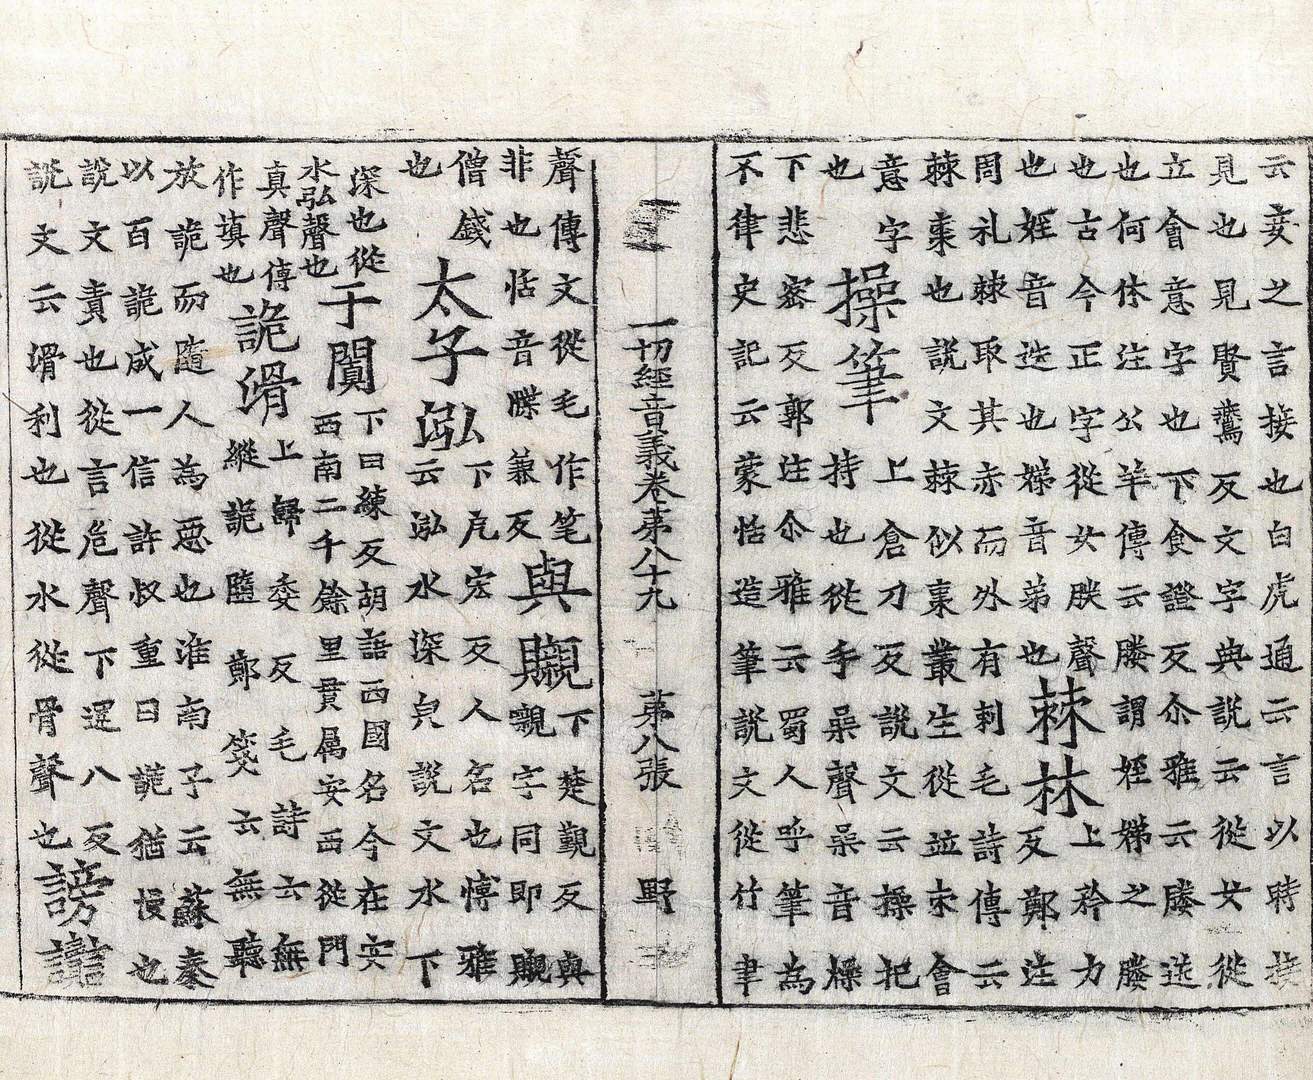 云妾之言接也白虎通云言以時接
見也見賢鷰反文字典說云從女從
立會意字也下食證反尒雅云媵送
也何休注公羊傳云媵謂姪娣之媵
也古今正字從女朕聲
也姪音迭也娣音弟也
棘林
上矜力
反鄭注
周礼棘取其赤而外有刺毛詩傳云
棘棗也說文棘似棗叢生從並朿會
意字
也
操筆
上倉刀反說文云操把
持也從手喿聲喿音燥
下悲密反郭注尒雅云蜀人呼筆為
不律史記云蒙恬造筆說文從竹聿
一切經音義卷第八十九 第八張 野
聲傳文從毛作笔
非也恬音牒兼反
與䞋
下楚覲反與
嚫字同即䞋
僧錢
也
太子泓
下卮宏反人名也愽雅
云泓水深皃說文水下
深也從
水弘聲也
于闐
下田練反胡語西國名今在安
西南二千餘里貫属安西從門
真聲傳
作填也
詭滑
上歸委反毛詩云無
縱詭隨鄭箋云無聽
放詭而隨人為惡也淮南子云蘇秦
以百詭成一信許叔重曰詭猶慢也
說文責也從言危聲下還八反
說文云滑利也從水從骨聲也
謗讟